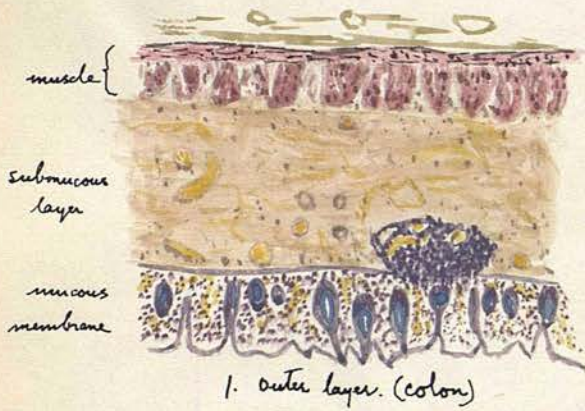 muscle
submucous
layer
mucous
membrane
1. Outer layer. (colon)